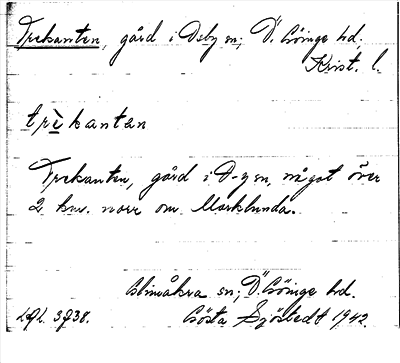 Trekanten, gård i Osby sn; Ö. Göinge hd,
Krist. l.
trèkantan
Trekanten, gård i O-y sn, något över
2 km. norr om Marklunda.
Glimåkra sn; Ö. Göinge hd.
3938. Gösta Sjöstedt 1942.